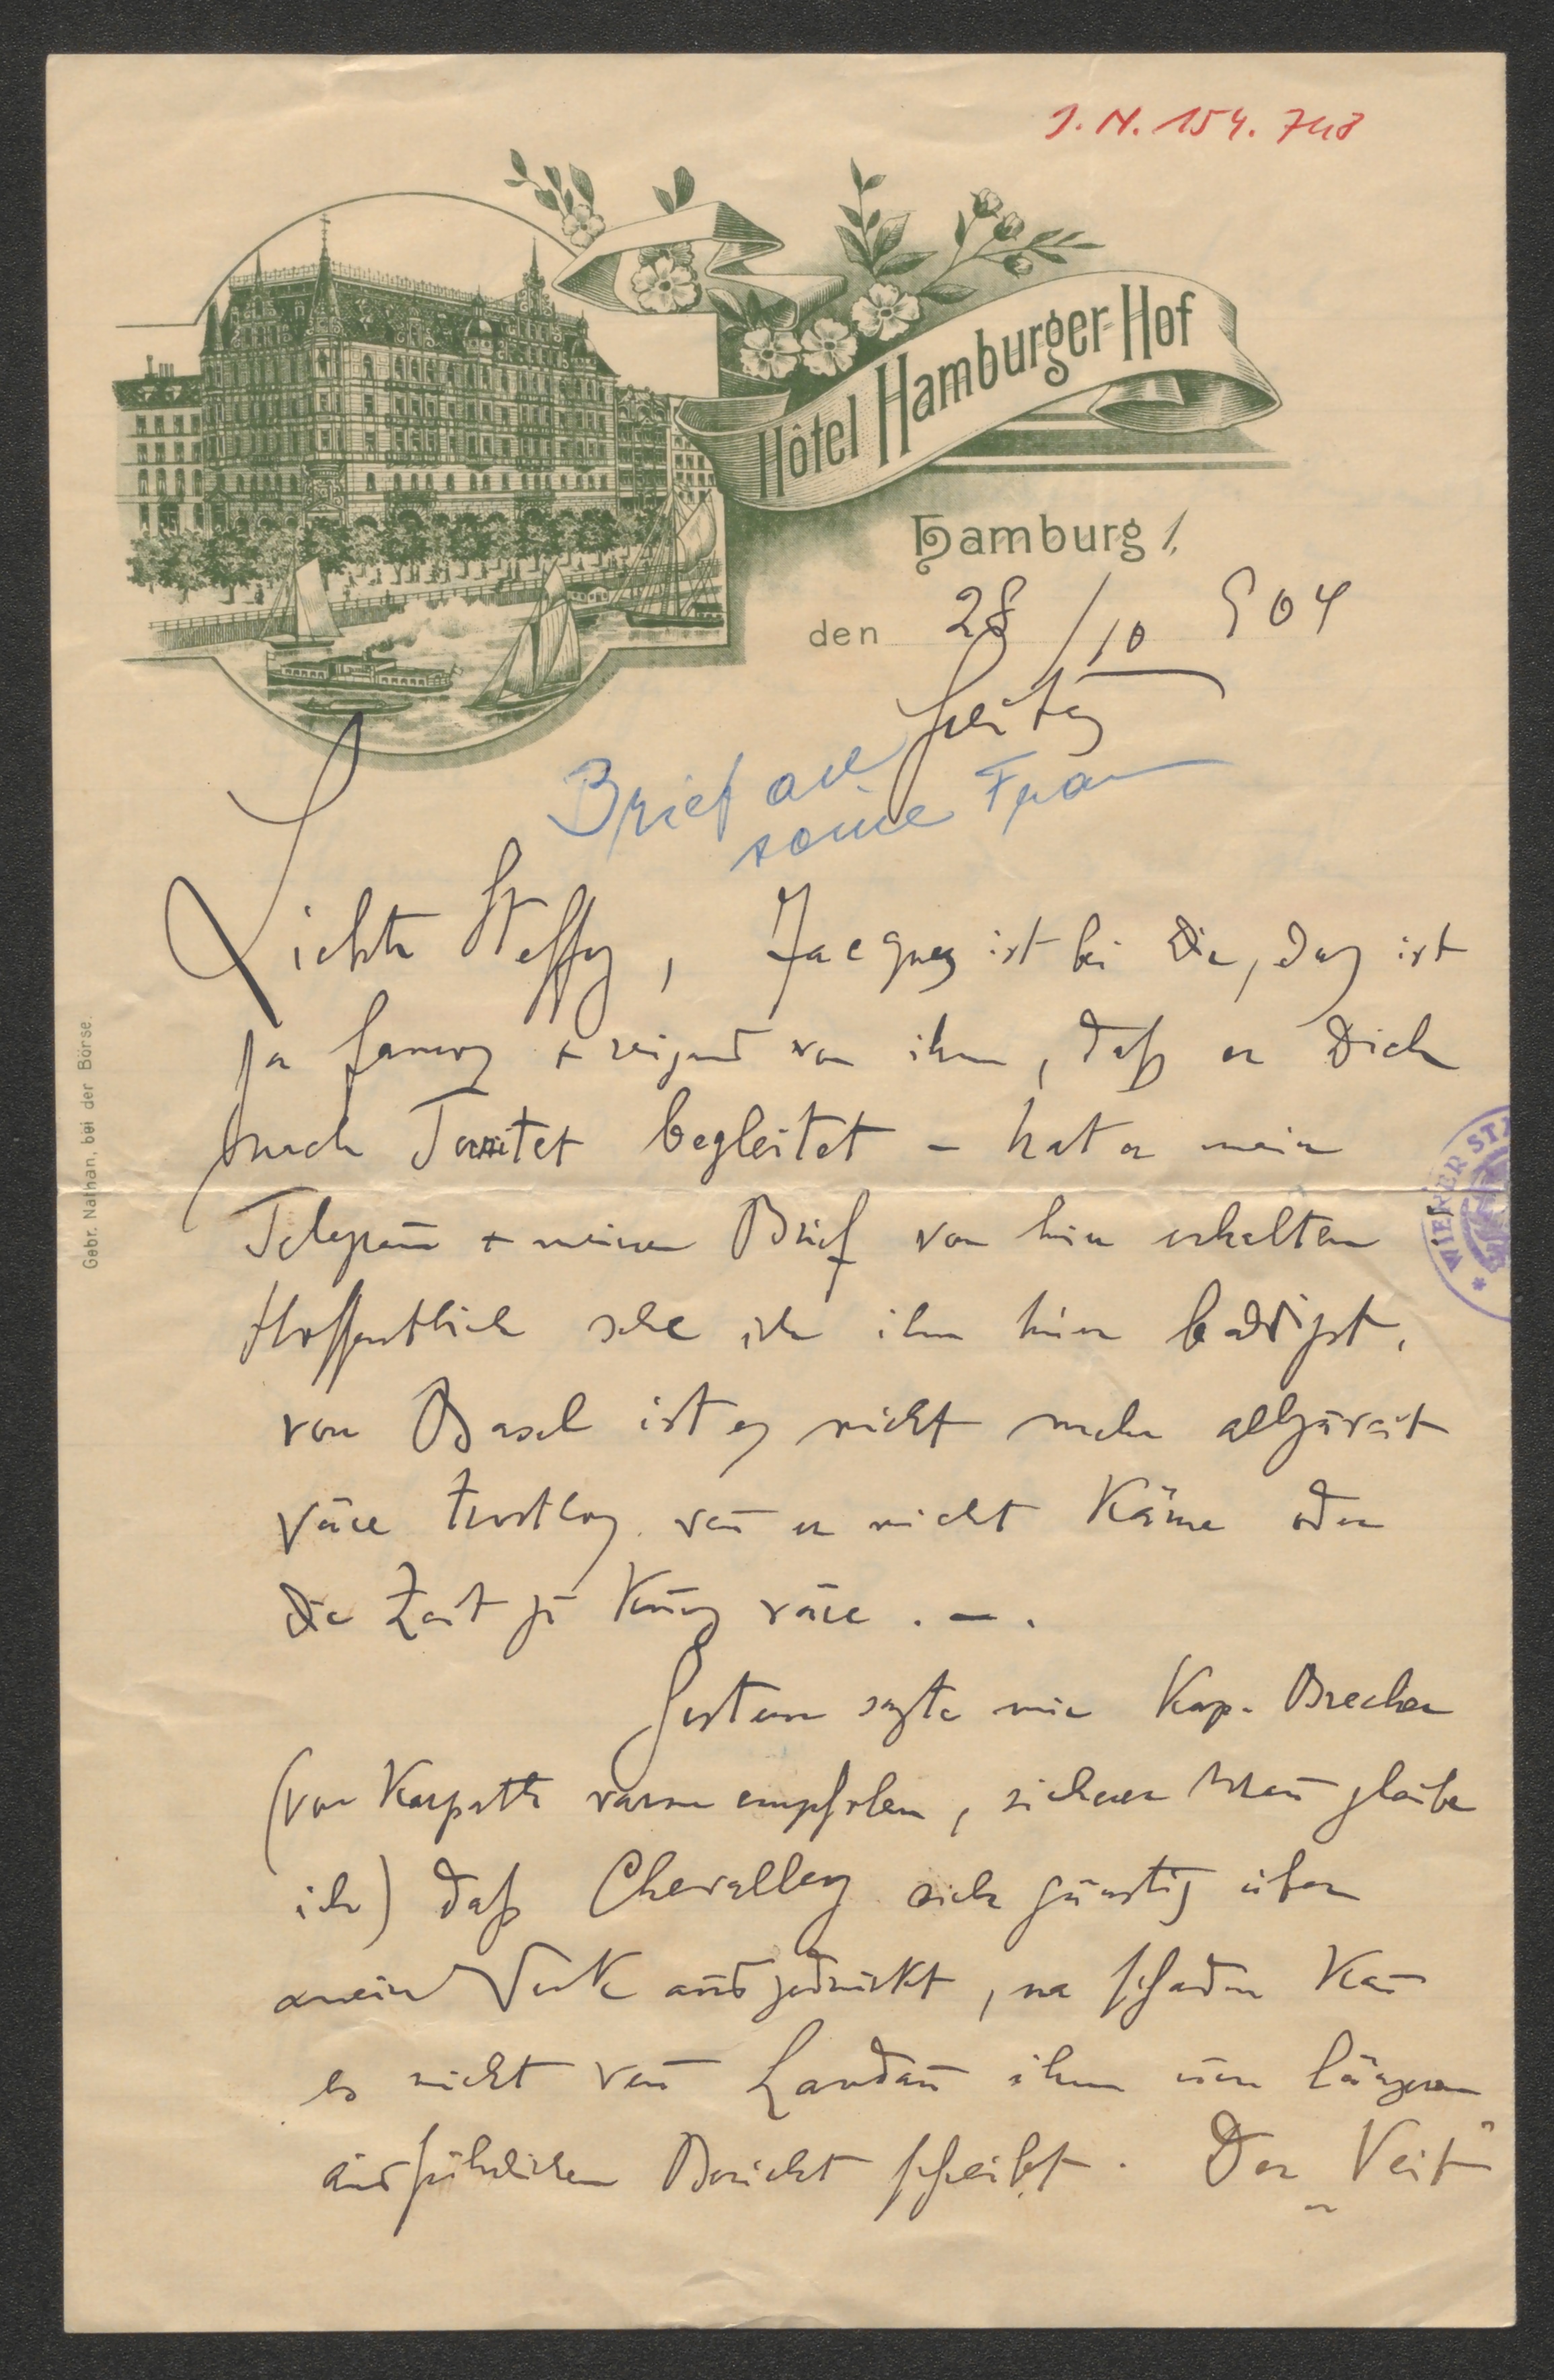 J. N. 154.748
Hôtel Hamburger-Hof
Hamburg 1,
den 28/10 904
Freitag
Brief an
seine Frau
Liebste Steffy, Jacques ist bei Dir, das ist
ja famos + reizend von ihm, daß er Dich
nach Territet begleitet – hat er mein
Telegram̄ + meinen Brief von hier erhalten
Hoffentlich sehe ich ihn hier baldigst,
von Basel ist es nicht mehr allzuweit
wäre trostlos wen̄ er nicht käme oder
die Zeit zu kurz wäre . – .
Gestern sagte mir Kap. Brecher
(von Karpath warm empfohlen, sicherer Man̄ glaube
ich) daß Chevalley sich günstig über
mein Werk ausgedrückt, na schaden kan̄
es nicht wen̄ Landau ihm einen längeren
ausführlichen Bericht schreibt. Der „Veit"
Gebr. Nathan, bei der Börse.
WIENER ST